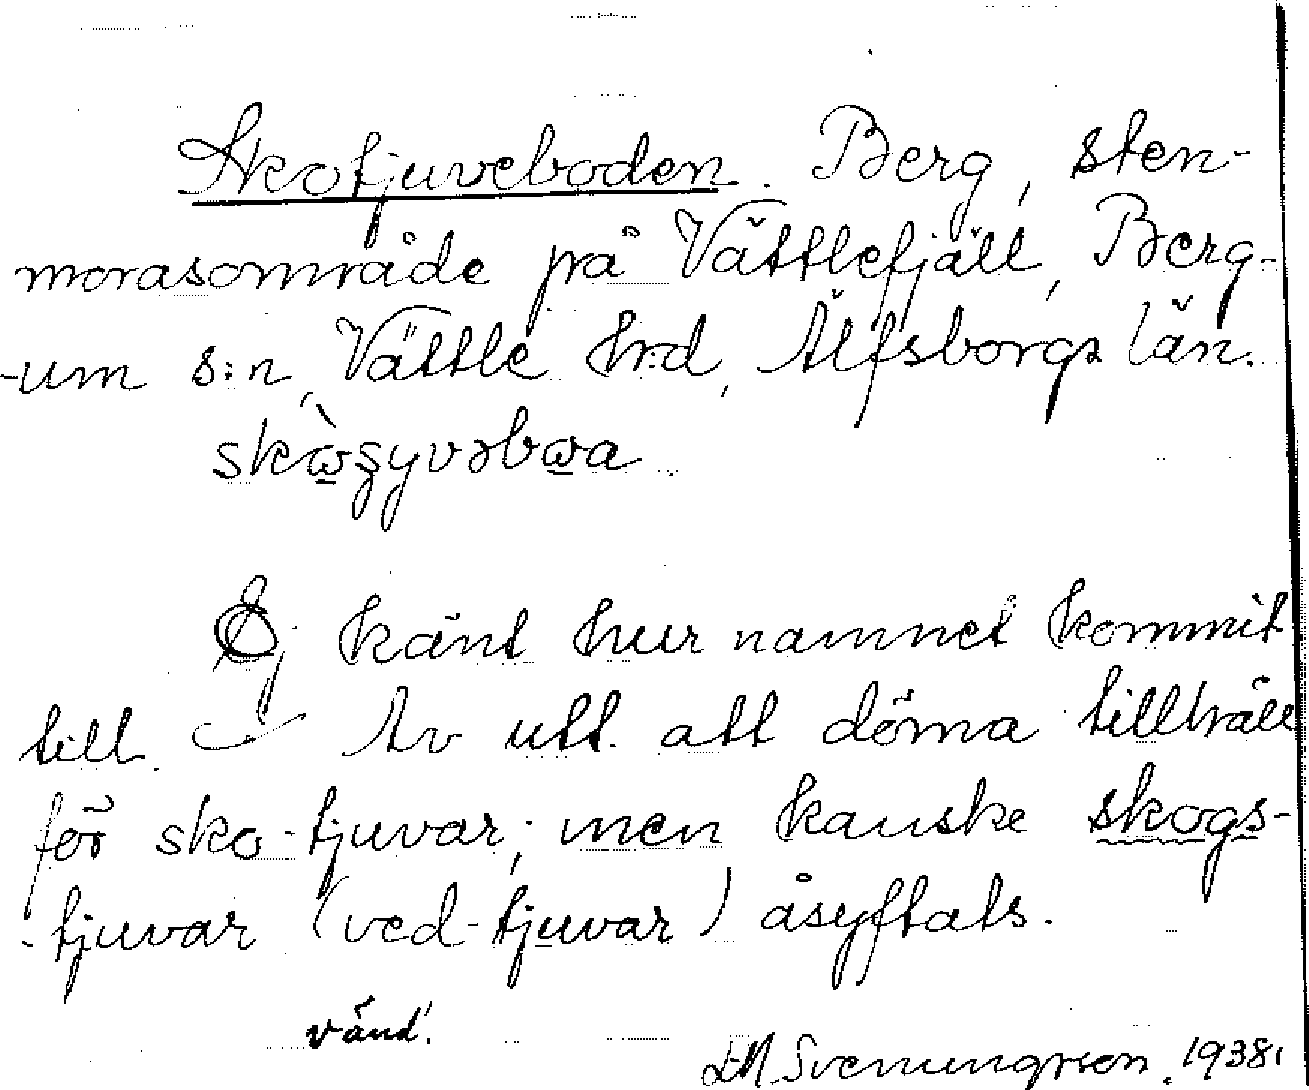 Skotjuveboden. Berg, sten-
morasområde på Vättlefjäll, Berg-
-um s:n, Vättle hrd, Älfsborgs län.
Ej känt hur namnet kommit
till. Av utt. att döma tillhåll
för sko-tjuvar; men kanske skogs-
-tjuvar (ved-tjuvar) åsyftats.
vänd!
Svenungsson. 1938.